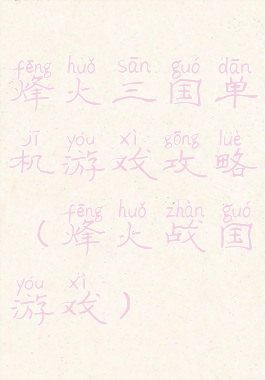 fēng huǒ sān guó dān
烽火三国单
jī yóu xì gōng lüè
机游戏攻略
fēng huǒ zhàn guó
（烽火战国
yóu xì
游戏）